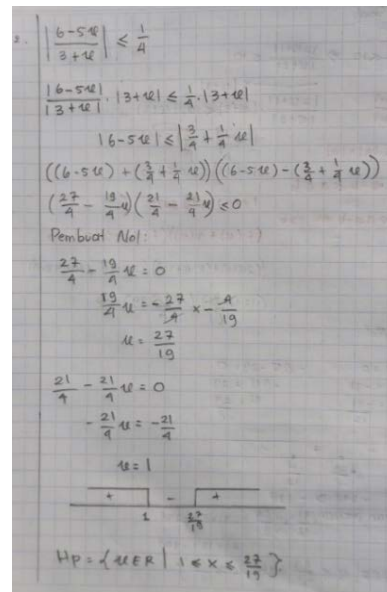 2. |(6-5x)/(3+x)| ≤ 1/4
|6-5x|/|3+x| · |3+x| ≤ 1/4 · |3+x|
|6-5x| ≤ |3/4 + 1/4 x|
((6-5x) + (3/4 + 1/4 x)) ((6-5x) - (3/4 + 1/4 x))
(27/4 - 19/4 x) (21/4 - 21/4 x) ≤ 0
Pembuat Nol:
27/4 - 19/4 x = 0
19/4 x = - 27/4 × - 4/19
x = 27/19
21/4 - 21/4 x = 0
- 21/4 x = - 21/4
x = 1
+ - +
1 27/19
Hp = {x ∈ R | 1 ≤ x ≤ 27/19}